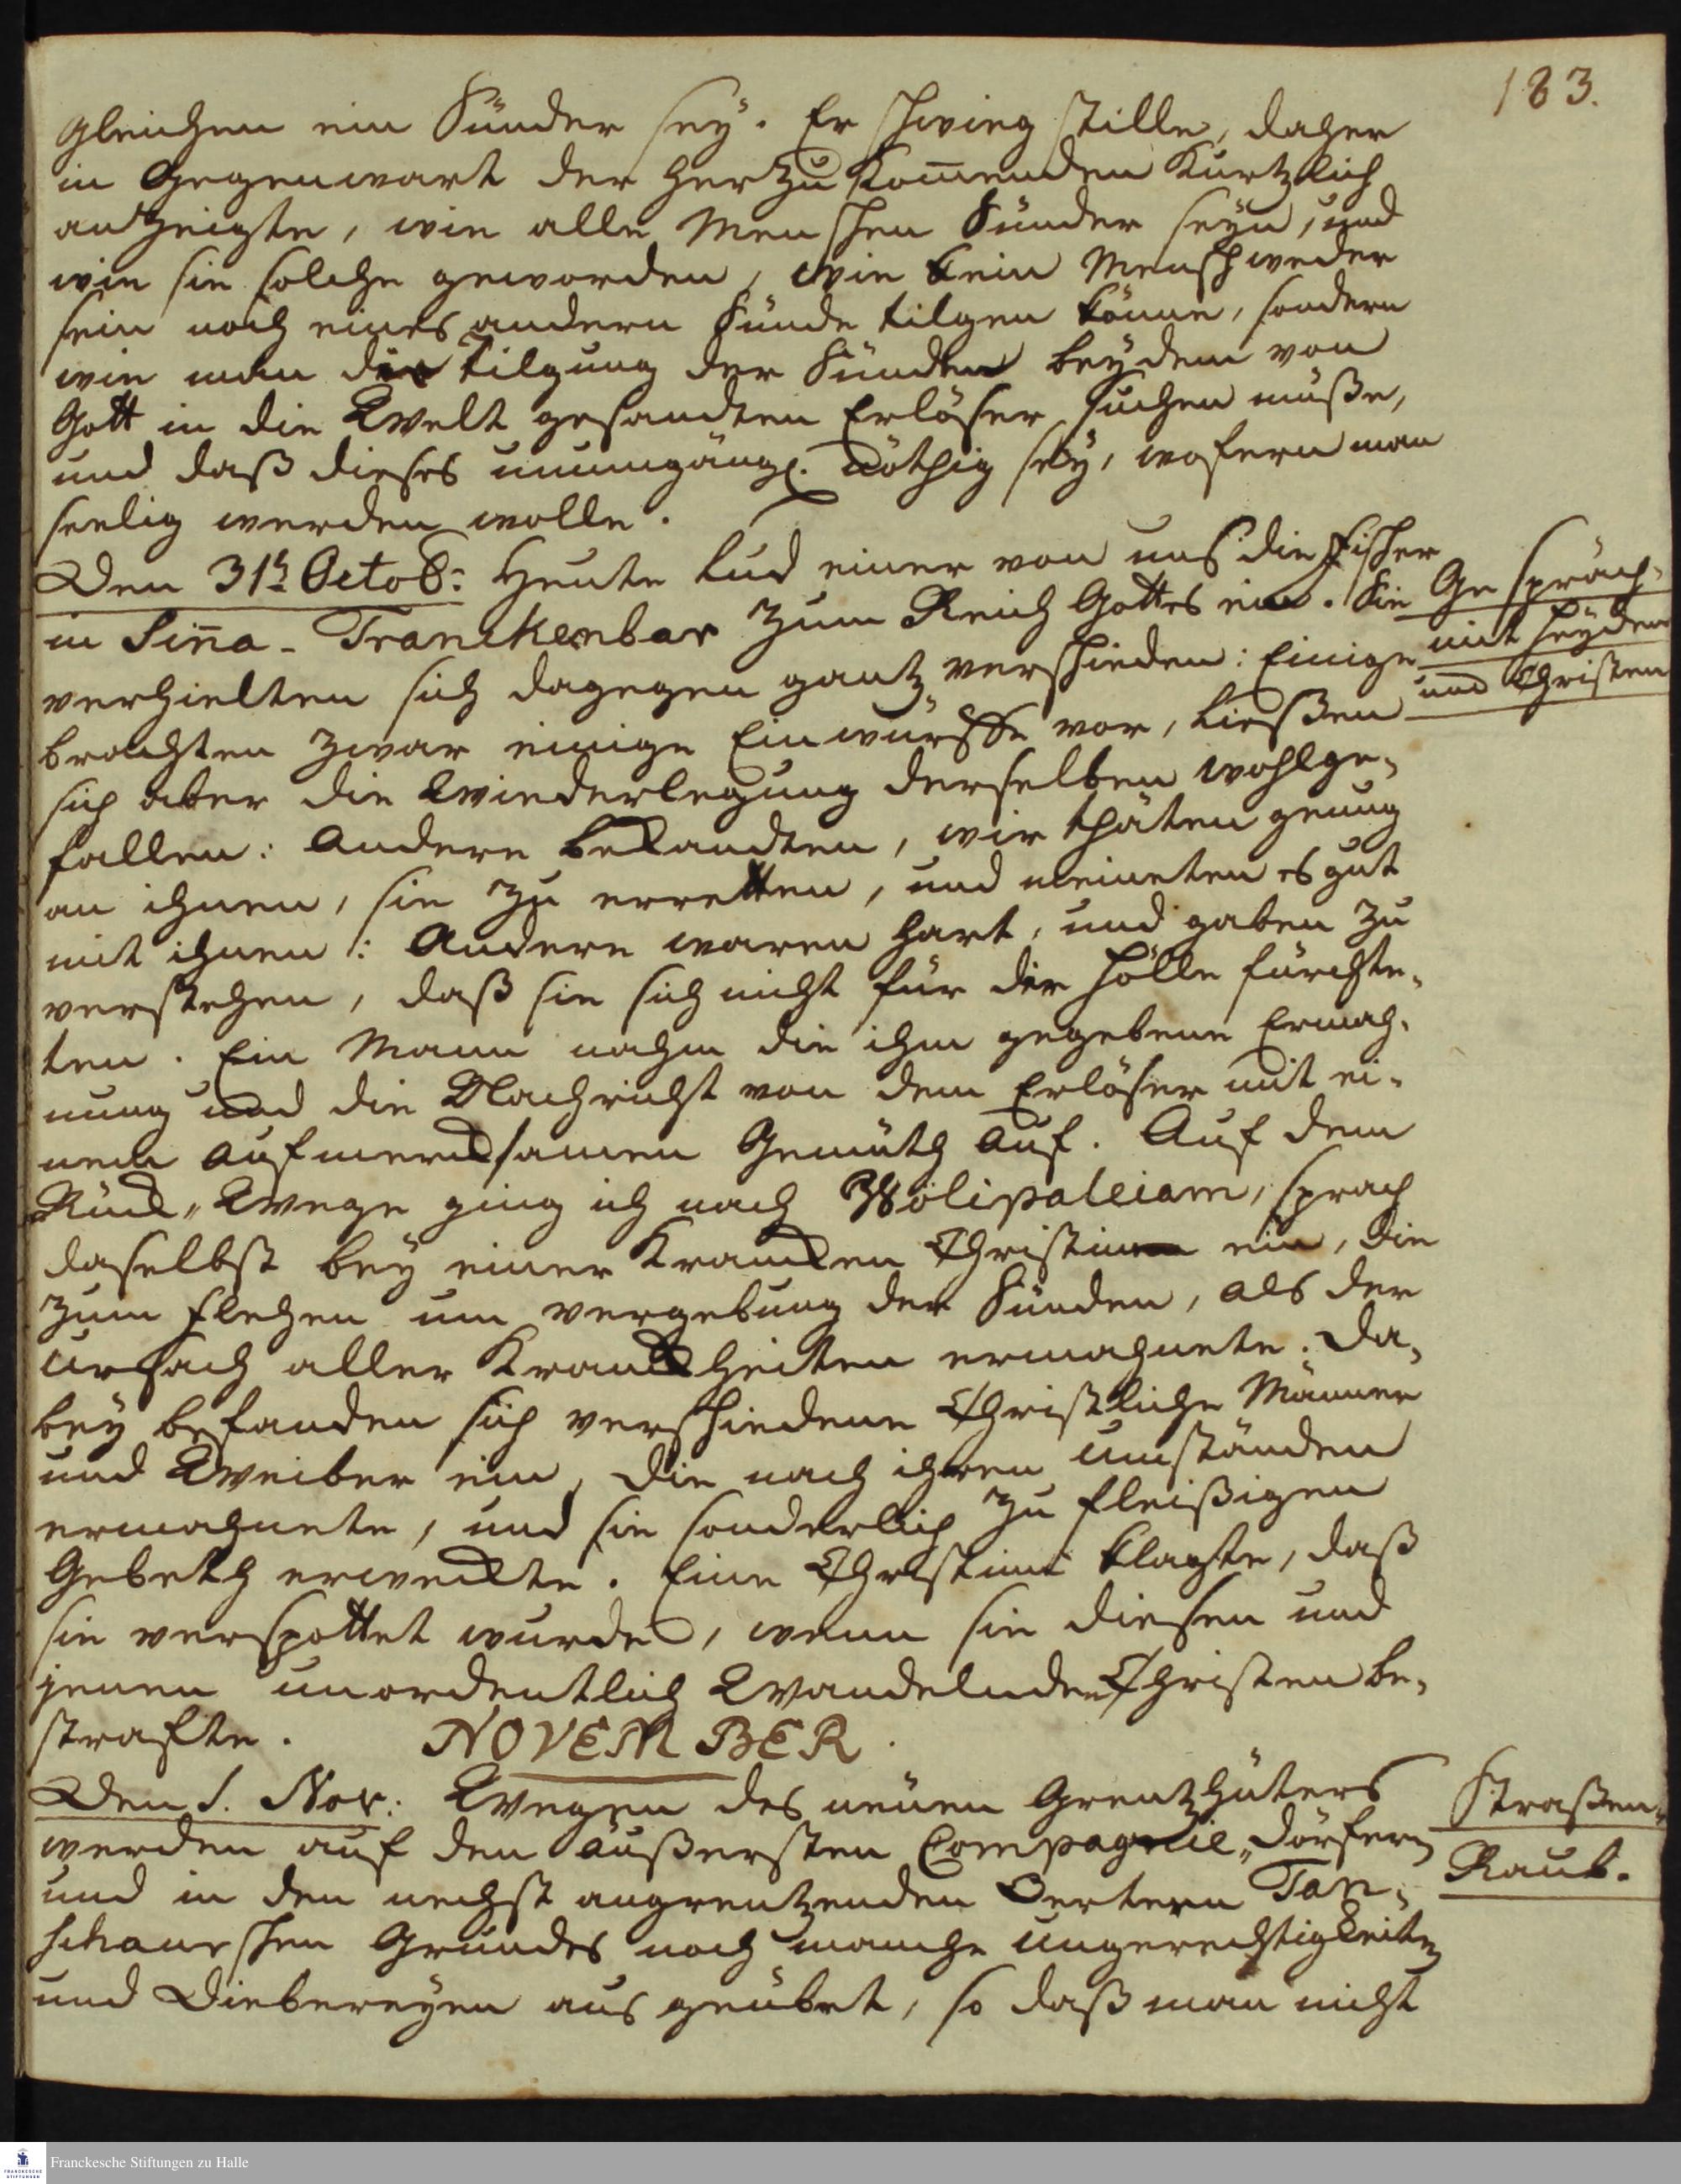 183.
gleichen ein Sünder seÿ. Er schwieg stille, daher
in Gegenwart der herzu kom̄enden kurtzlich
anzeigte, wie alle Menschen Sünder seÿn, und
wie sie solche geworden, wie kein Mensch weder
sein noch eines andern Sünde tilgen könne, sondern
wie man die Tilgung der Sünden beÿ dem von
Gott in die Welt gesandten Erlöser suchen müße,
und daß dieses unumgängl. nöthig seÿ, wofern man
seelig werden wolle.
Den 31t. Octob: Heute lud einer von uns die Fischer
in Sin̄a-Tranckenbar zum Reich Gottes ein. Sie
verhielten sich dagegen gantz verschieden: Einige
brachten zwar einige Einwürffe vor, ließen
sich aber die Wiederlegung derselben wohlge-
fallen: Andere bekandten, wir thäten genug
an ihnen, sie zu erretten, und meineten es gut
mit ihnen: Andere waren hart, und gaben zu
verstehen, daß sie sich nicht für der Hölle fürchte-
ten. Ein Mann nahm die ihm gegebene Ermah-
nung und die Nachricht von dem Erlöser mit ei-
nem aufmercksamen Gemüth auf. Auf dem
Rück-Wege ging ich nach Wölipaleiam, sprach
daselbst beÿ einer krancken Christin ein, die
zum flehen um vergebung der Sünden, als der
Ursach aller Kranckheiten ermahnete. Da-
beÿ befanden sich verschiedene Christliche Männer
und Weiber ein, die nach ihren umständen
ermahnete, und sie sonderlich zu fleißigen
Gebeth erweckte. Eine Christin klagte, daß
sie verspottet wurde, wenn sie diesen und
jenen unordentlich Wandelnden Christen be-
strafte.
Gespräch
mit Heÿden
und Christen
NOVEMBER.
Den 1. Nov: Wegen des neuen Grentzhüters
werden auf den äußersten Compagnie-Dörfern
und in den nechst angrentzenden Oertern Tan-
schaurschen Grundes noch manche Ungerechtigkeiten
und Diebereÿen aus geübet, so daß man nicht
Straßen-
Raub.
Franckesche Stiftungen zu Halle